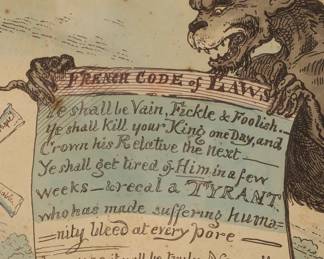 FRENCH CODE of LAWS
Ye shall be Vain, Fickle & Foolish.
Ye shall kill your King one Day, and
Crown his Relative the next
Ye shall get tired of Him in a few
weeks — & recal a TYRANT
who has made suffering huma=
=nity bleed at every pore —